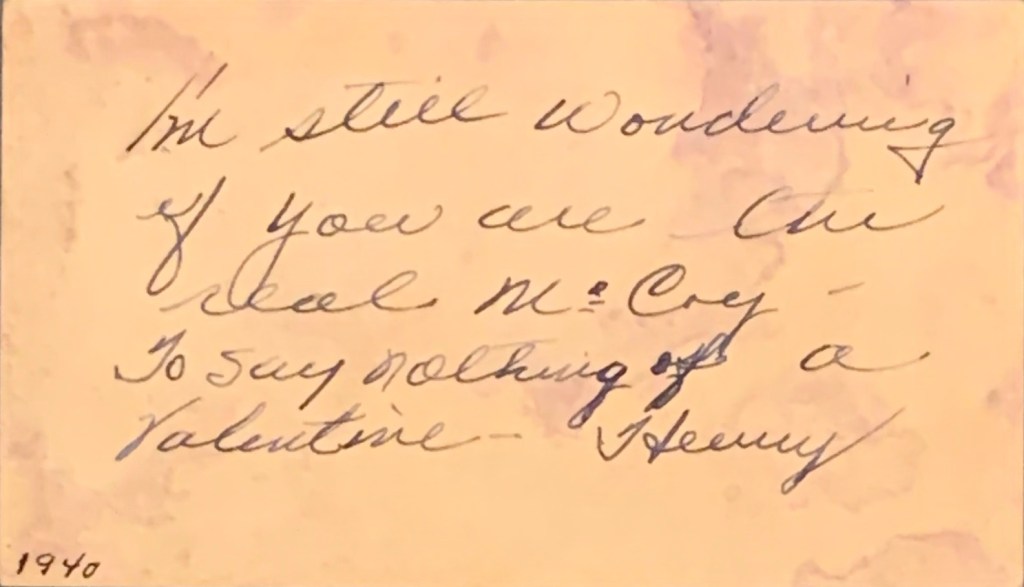 I'm still wondering
if you are the
real Mc Coy –
To say nothing of a
Valentine – Henry
1940